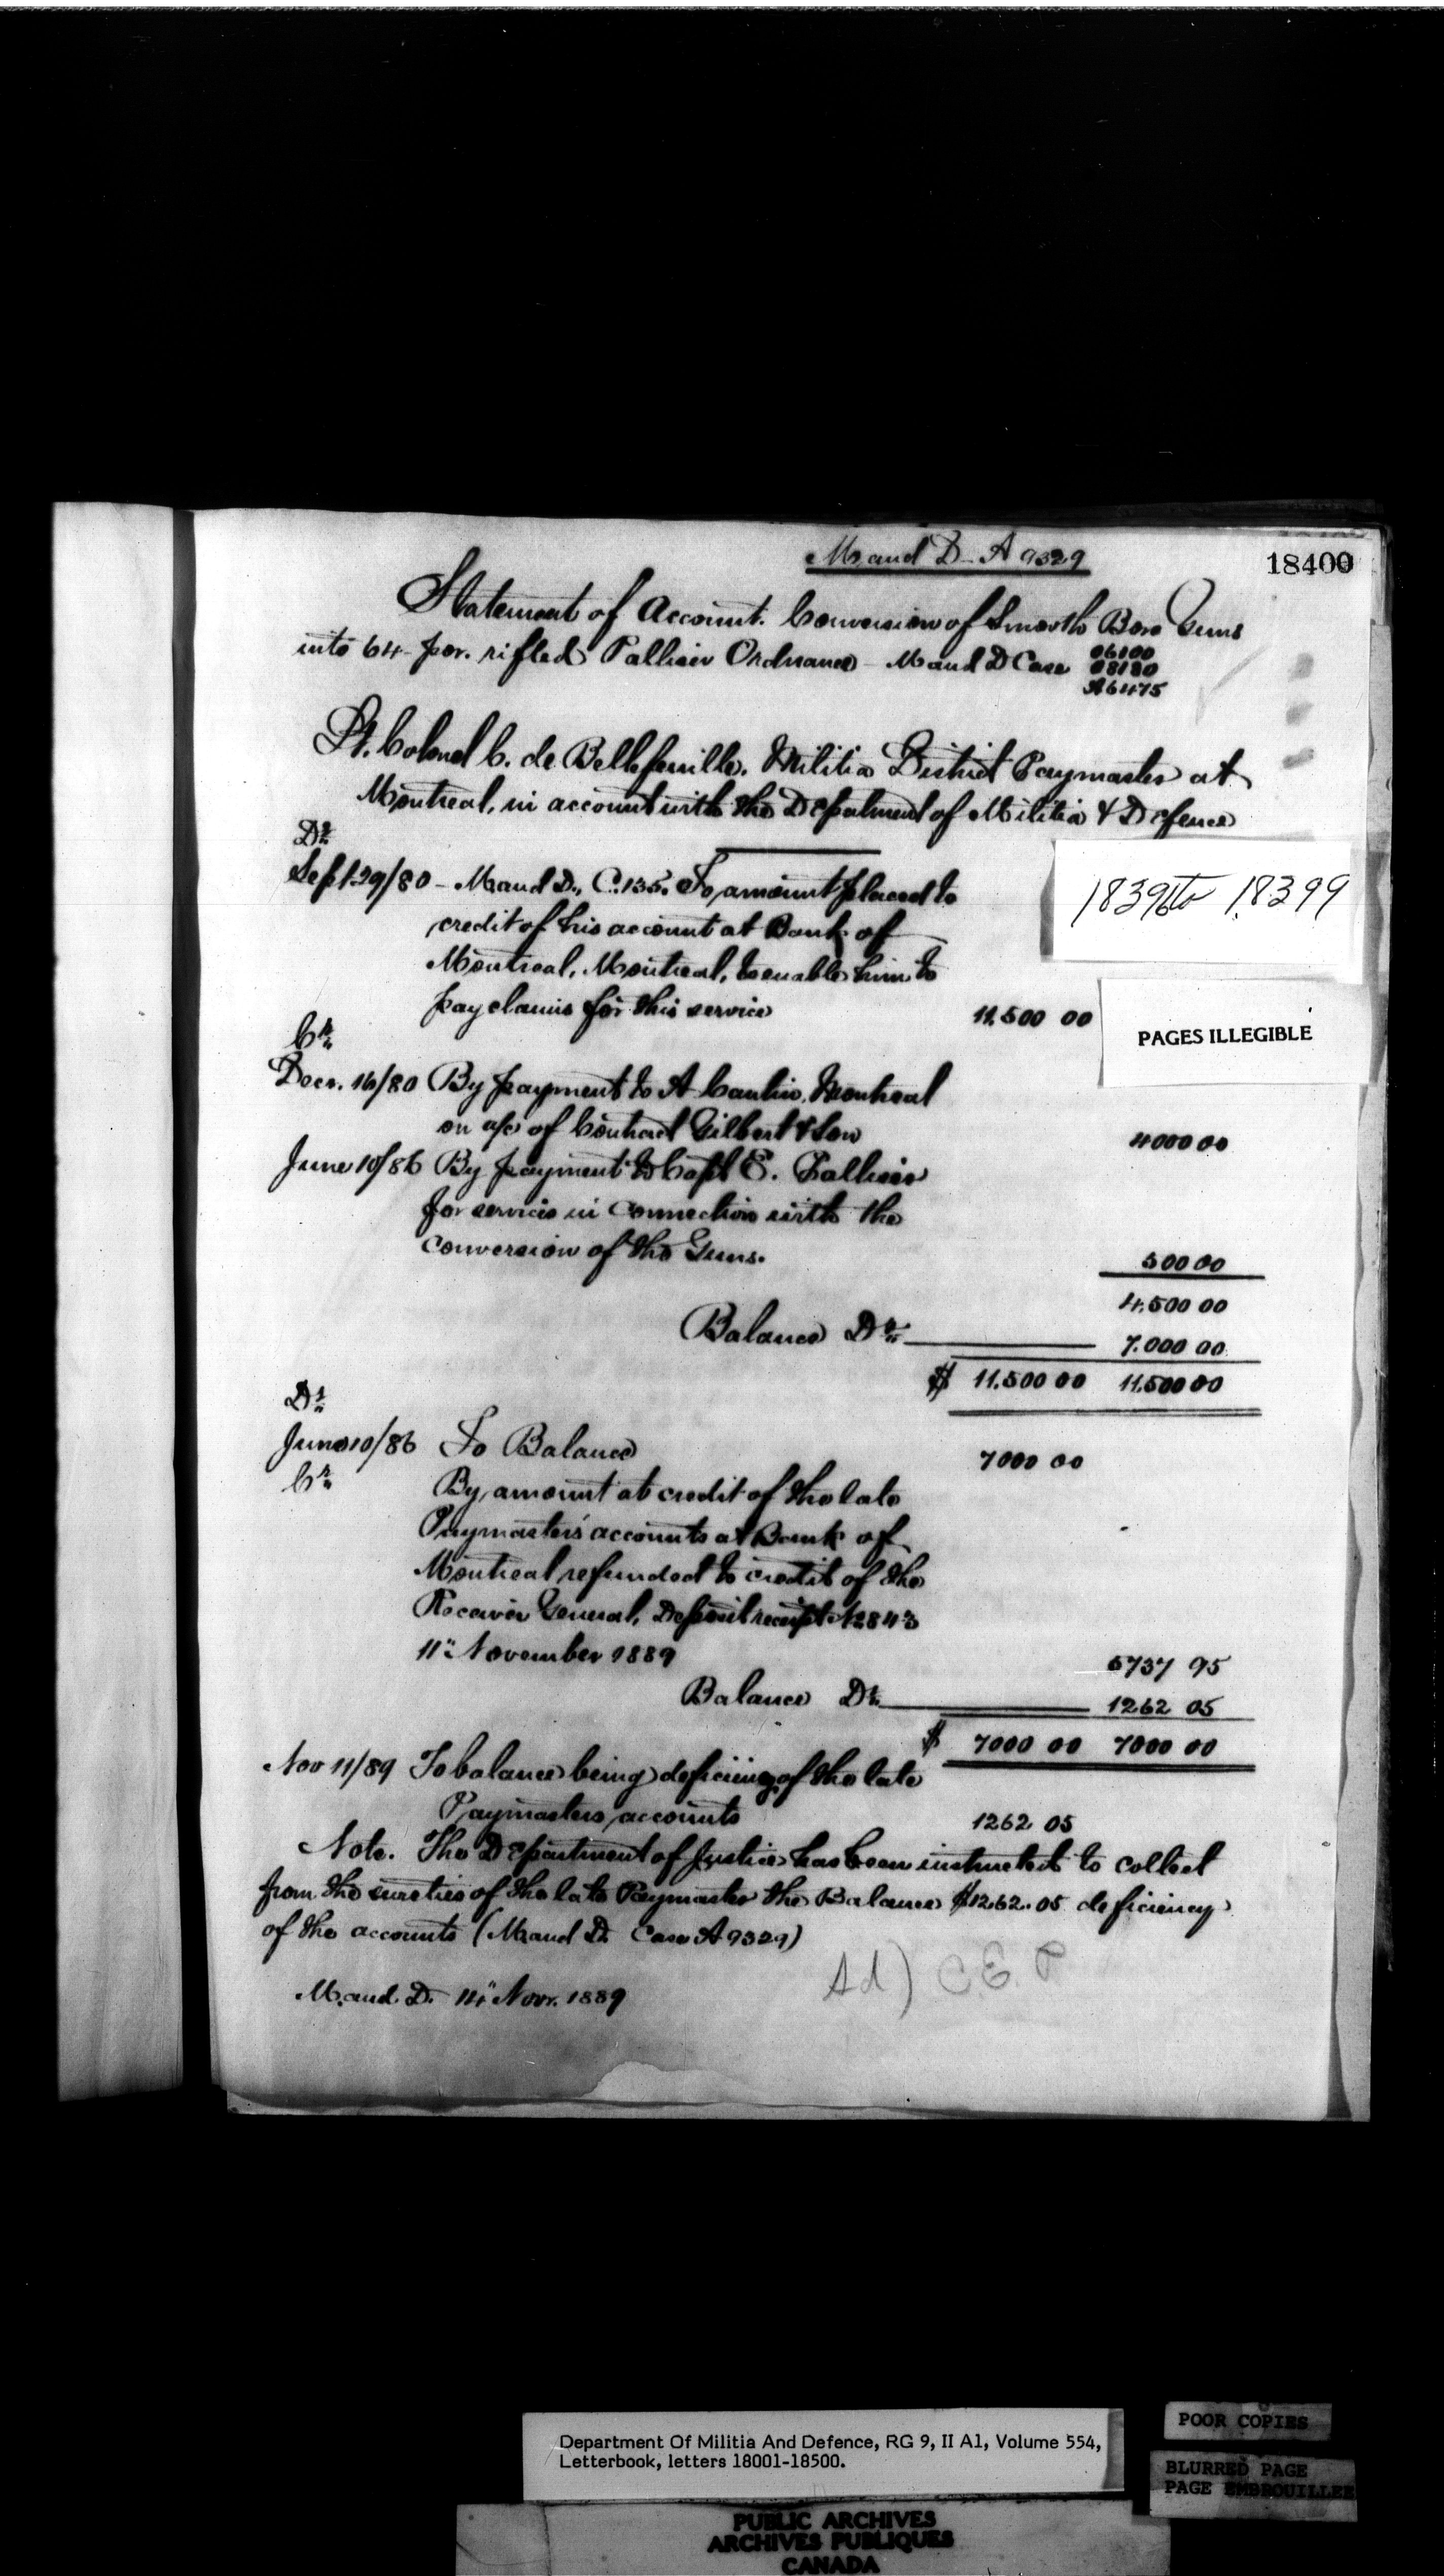 M and D - A 9329
18400
Statement of Account. Conversion of Smooth Bore Guns
into 64 - por. rifled Palliser Ordnance - M and D Case 06100
08180
A6475
Lt. Colonel C. de Bellefeuille. Militia District Paymaster at
Montreal, in account with the Department of Militia & Defence
Dr
Sept 29/80 - M and D., C.135. To amount placed to
credit of his account at Bank of
Montreal, Montreal, to enable him to
pay claims for this service 11,500 00
18396 to 18399
PAGES ILLEGIBLE
Cr
Decr. 16/80 By payment to A Cantin, Montreal
on a/c of Contract Gilbert & Son 4000 00
June 10/86 By payment to Capt E. Palliser
for services in connection with the
conversion of the Guns. 500 00
4,500 00
Balance Dr 7.000 00
$ 11,500 00 11,500 00
Dr
June 10/86 To Balance 7000 00
Cr By amount at credit of the late
Paymasters' accounts at Bank of
Montreal refunded to credit of the
Receiver General, Deposit receipt No 2843
11" November 1889 5737 95
Balance Dr 1262 05
$ 7000 00 7000 00
Nov 11/89 To balance being deficiency of the late
Paymasters accounts 1262 05
Note. The Department of Justice has been instructed to collect
from the sureties of the late Paymaster the Balance $1262.05 deficiency
of the accounts (M and D. Case A 9329)
Sd) C.E.P
M. and. D. 11" Novr. 1889
Department Of Militia And Defence, RG 9, II A1, Volume 554,
Letterbook, letters 18001-18500.
POOR COPIES
BLURRED PAGE
PAGE EMBROUILLEE
PUBLIC ARCHIVES
ARCHIVES PUBLIQUES
CANADA